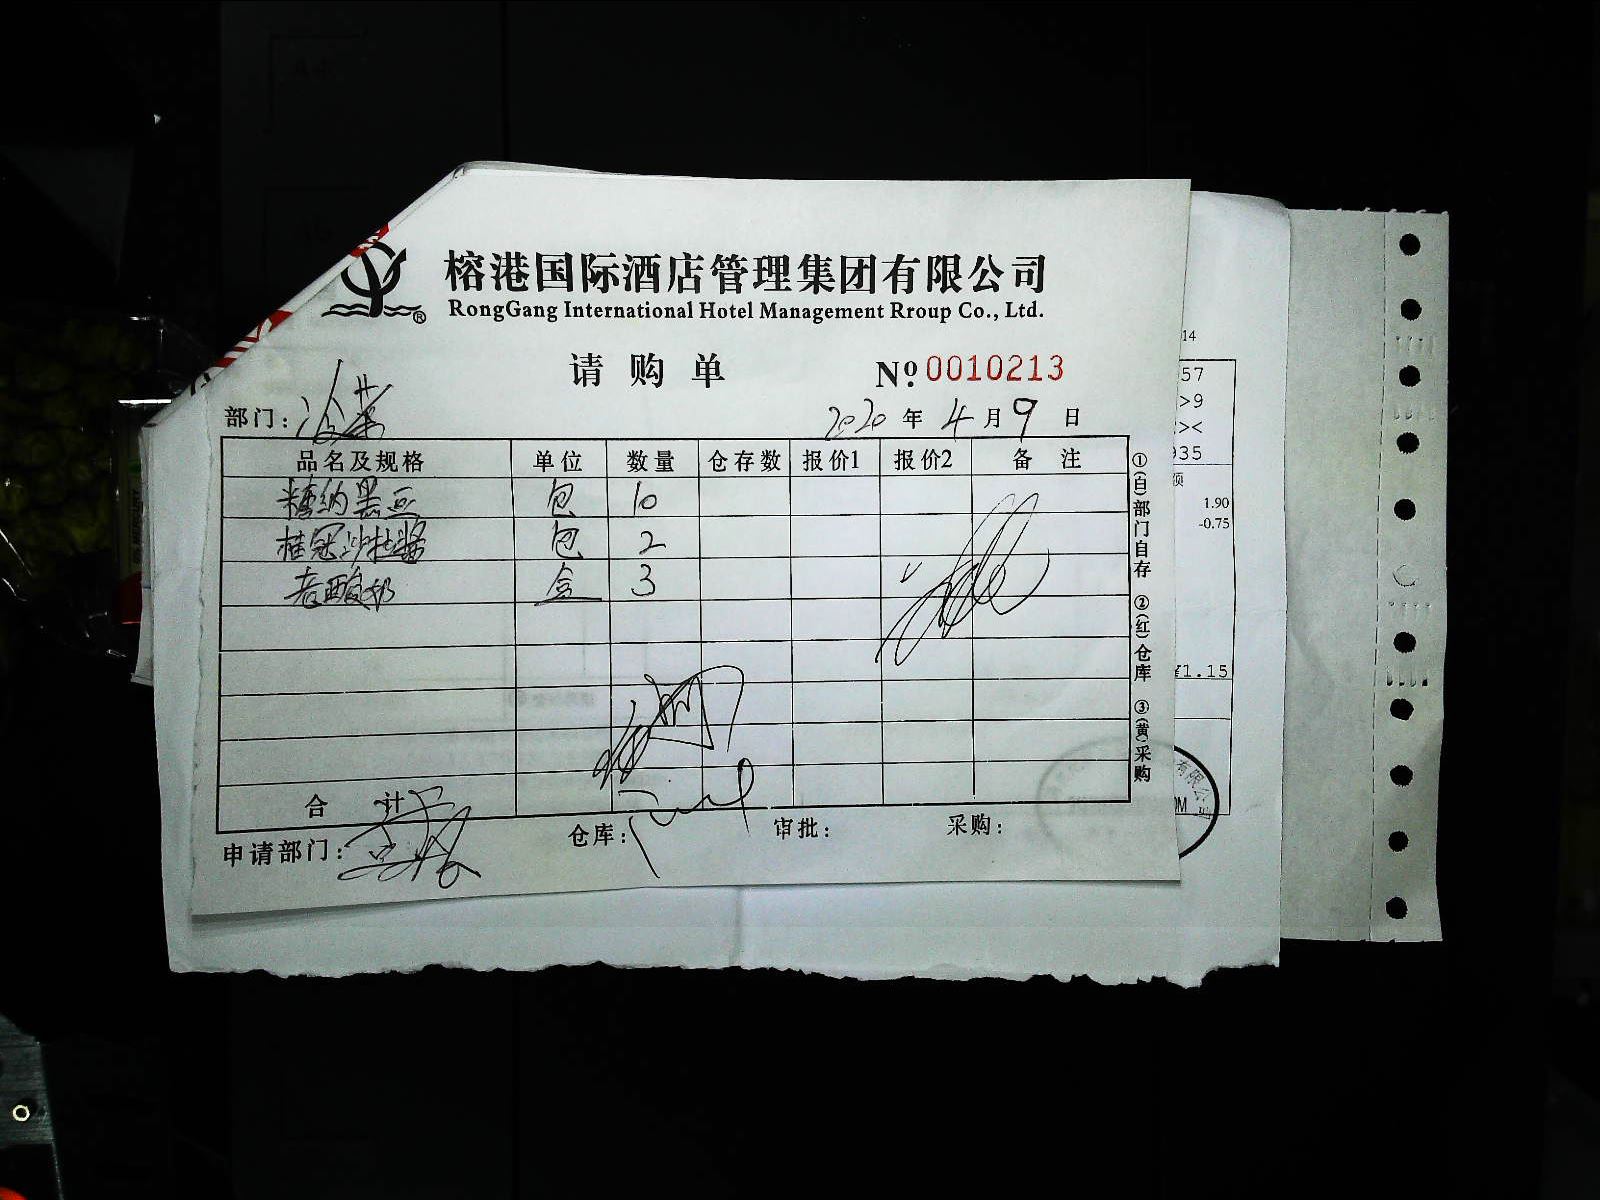 榕港国际酒店管理集团有限公司
RongGang International Hotel Management Rroup Co., Ltd.
®
请购单 Nº 0010213
部门: 冷菜 2020 年 4 月 9 日
品名及规格 单位 数量 仓存数 报价1 报价2 备注
糖纳黑豆 包 10
桂冠沙拉酱 包 2
老酸奶 盒 3
合计
申请部门: 仓库: 审批: 采购:
①(白)部门自存 ②(红)仓库 ③(黄)采购
14
57
>9
><
935
额
1.90
-0.75
¥1.15
有限公司